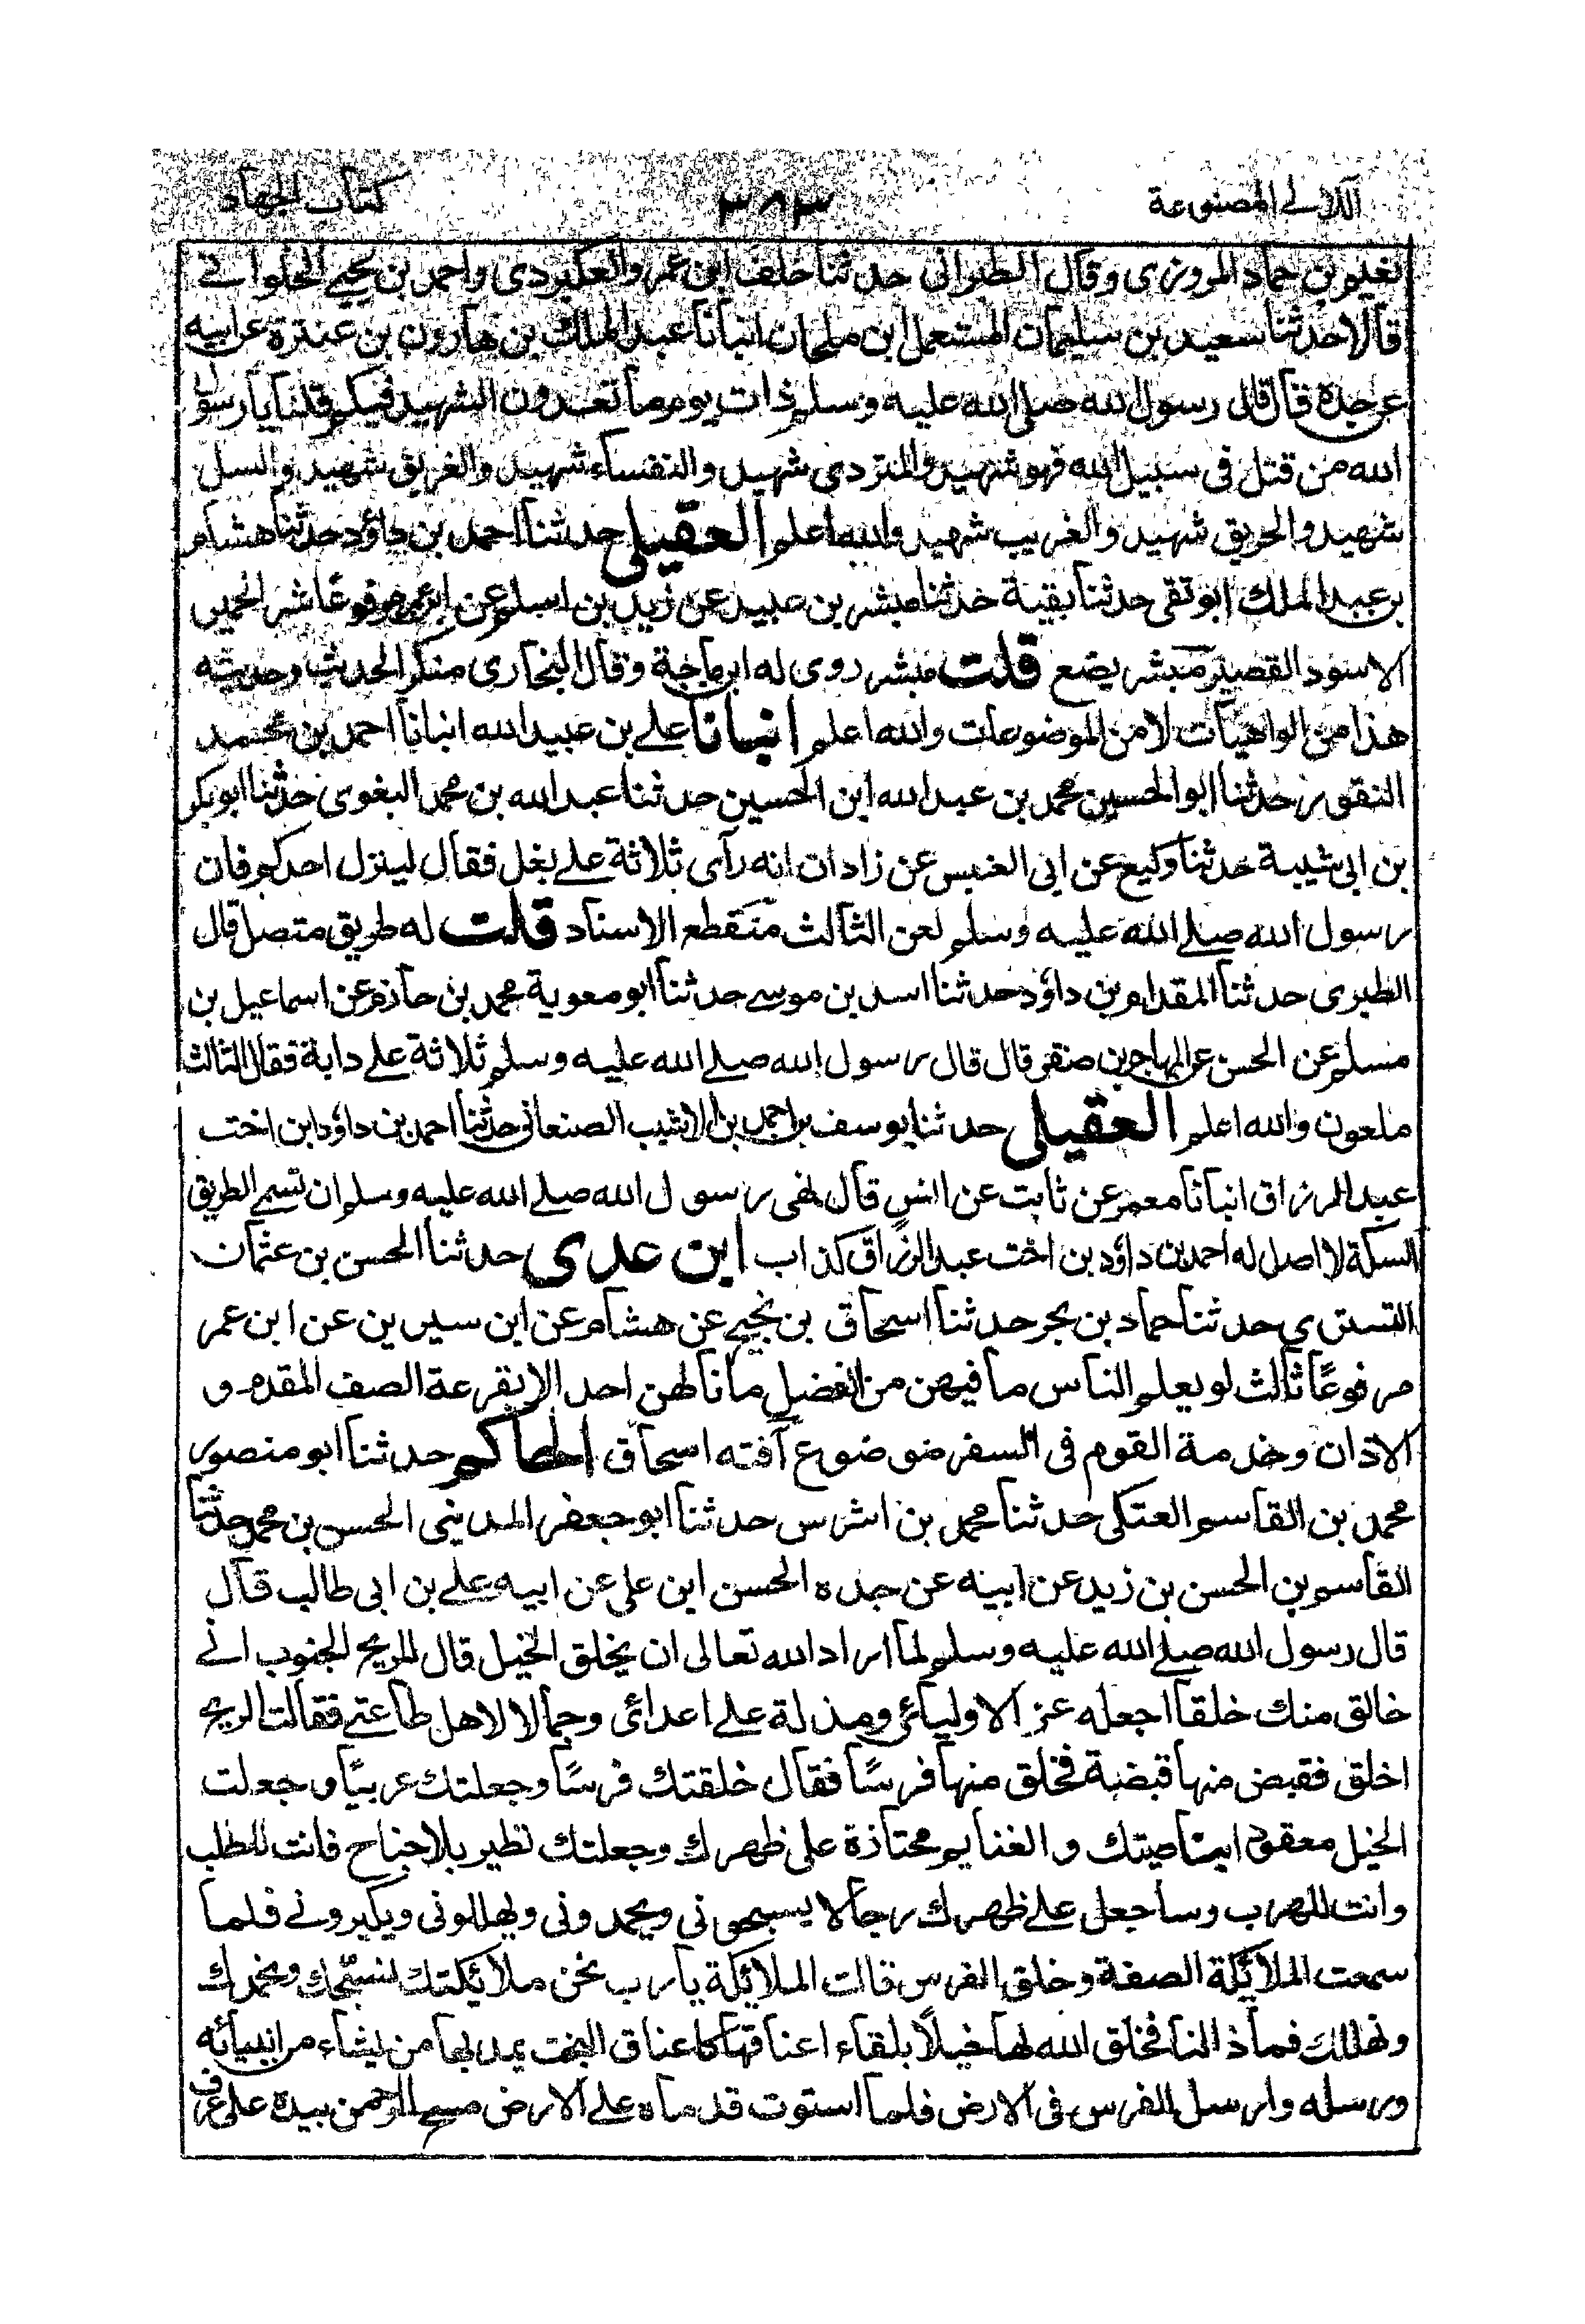 اللآلى المصنوعة ٣٨٣ كتاب الجهاد
نعيم بن حماد المروزى وقال الطبرانى حدثنا خلف ابن عمرو العكبردى واحمد بن يحيى الحلوانے
قالا حدثنا سعيد بن سليمان المستعمل ابن ملحان انبانا عبد الملك بن هارون بن عنترة عن ابيه
عن جده قال قال رسول الله صلى الله عليه وسلم ذات يوم ما تعدون الشهيد فيكم قلنا يا رسول
الله من قتل فى سبيل الله فهو شهيد والمتردى شهيد والنفساء شهيد والغريق شهيد والسل
شهيد والحريق شهيد والغريب شهيد والله اعلم العقيلى حدثنا احمد بن داؤد حدثنا هشام
بن عبد الملك ابو تقى حدثنا بقية حدثنا مبشر بن عبيد عن زيد بن اسلم عن ابن عمر مرفوعًا شر الحمير
الاسود القصير مبشر يضع قلت مبشر روى له ابن ماجة وقال البخارى منكر الحديث وحديثه
هذا من الواهيات لا من الموضوعات والله اعلم انبانا على بن عبيد الله انبانا احمد بن محمد
النقور حدثنا ابو الحسين محمد بن عبد الله ابن الحسين حدثنا عبد الله بن محمد البغوى حدثنا ابو بكر
بن ابى شيبة حدثنا وكيع عن ابى العنبس عن زادان انه رآى ثلاثة على بغل فقال لينزل احدكم فان
رسول الله صلے الله عليه وسلم لعن الثالث منقطع الاسناد قلت له طريق متصل قال
الطبرى حدثنا المقدام بن داؤد حدثنا اسد بن موسے حدثنا ابو معوية محمد بن حازم عن اسماعيل بن
مسلم عن الحسن عن المهاجر بن صنقر قال قال رسول الله صلے الله عليه وسلم ثلاثة علے دابة فقال الثالث
ملعون والله اعلم العقيلى حدثنا يوسف بن احمد بن الاشيب الصنعانى حدثنا احمد بن داؤد ابن اخت
عبد الرزاق انبانا معمر عن ثابت عن انس قال نهى رسول الله صلے الله عليه وسلم ان تسمے الطريق
السكة لا اصل له احمد بن داؤد بن اخت عبد الرزاق كذاب ابن عدى حدثنا الحسن بن عثمان
التسترى حدثنا حماد بن بحر حدثنا اسحاق بن نجيے عن هشام عن ابن سيرين عن ابن عمر
مرفوعًا ثالث لو يعلم الناس ما فيهن من الفضل ما نالهن احد الا بقرعة الصف المقدم و
الاذان وخدمة القوم فى السفر ضوضوع آفته اسحاق الحاكم حدثنا ابو منصور
محمد بن القاسم العتكى حدثنا محمد بن اشرس حدثنا ابو جعفر المدينى الحسن بن محمد حدثنا
القاسم بن الحسن بن زيد عن ابيه عن جده الحسن ابن على عن ابيه علے بن ابى طالب قال
قال رسول الله صلے الله عليه وسلم لما اراد الله تعالى ان يخلق الخيل قال للريح الجنوب انے
خالق منك خلقا اجعله عز الاوليائى ومذلة علے اعدائى وجمالا لاهل طاعتے فقالت الريح
اخلق فقبض منها قبضة فخلق منها فرسًا فقال خلقتك فرسًا وجعلتك عربيًا وجعلت
الخيل معقود ابناصيتك والغنايم محتازة على ظهرك وجعلتك تطير بلا جناح فانت للطلب
وانت للهرب وساجعل علے ظهرك رجالا يسبحونى ويحمدونى ويهللونى ويكبرونے فلما
سمعت الملائكة الصفة وخلق الفرس قالت الملائكة يا رب نحن ملائكتك نسبحك ونحمدك
ونهللك فماذا لنا فخلق الله لها خيلًا بلقاء اعناقها كاعناق البخت يمد بها من يشاء من انبيائه
ورسله وارسل الفرس فى الارض فلما استوت قدماه علے الارض مسح الرحمن بيده على عرف